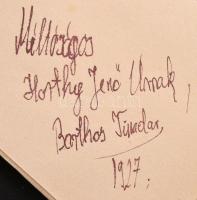 Méltóságos
Horthy Jenő Urnak,
Barthos Tivadar
1927.